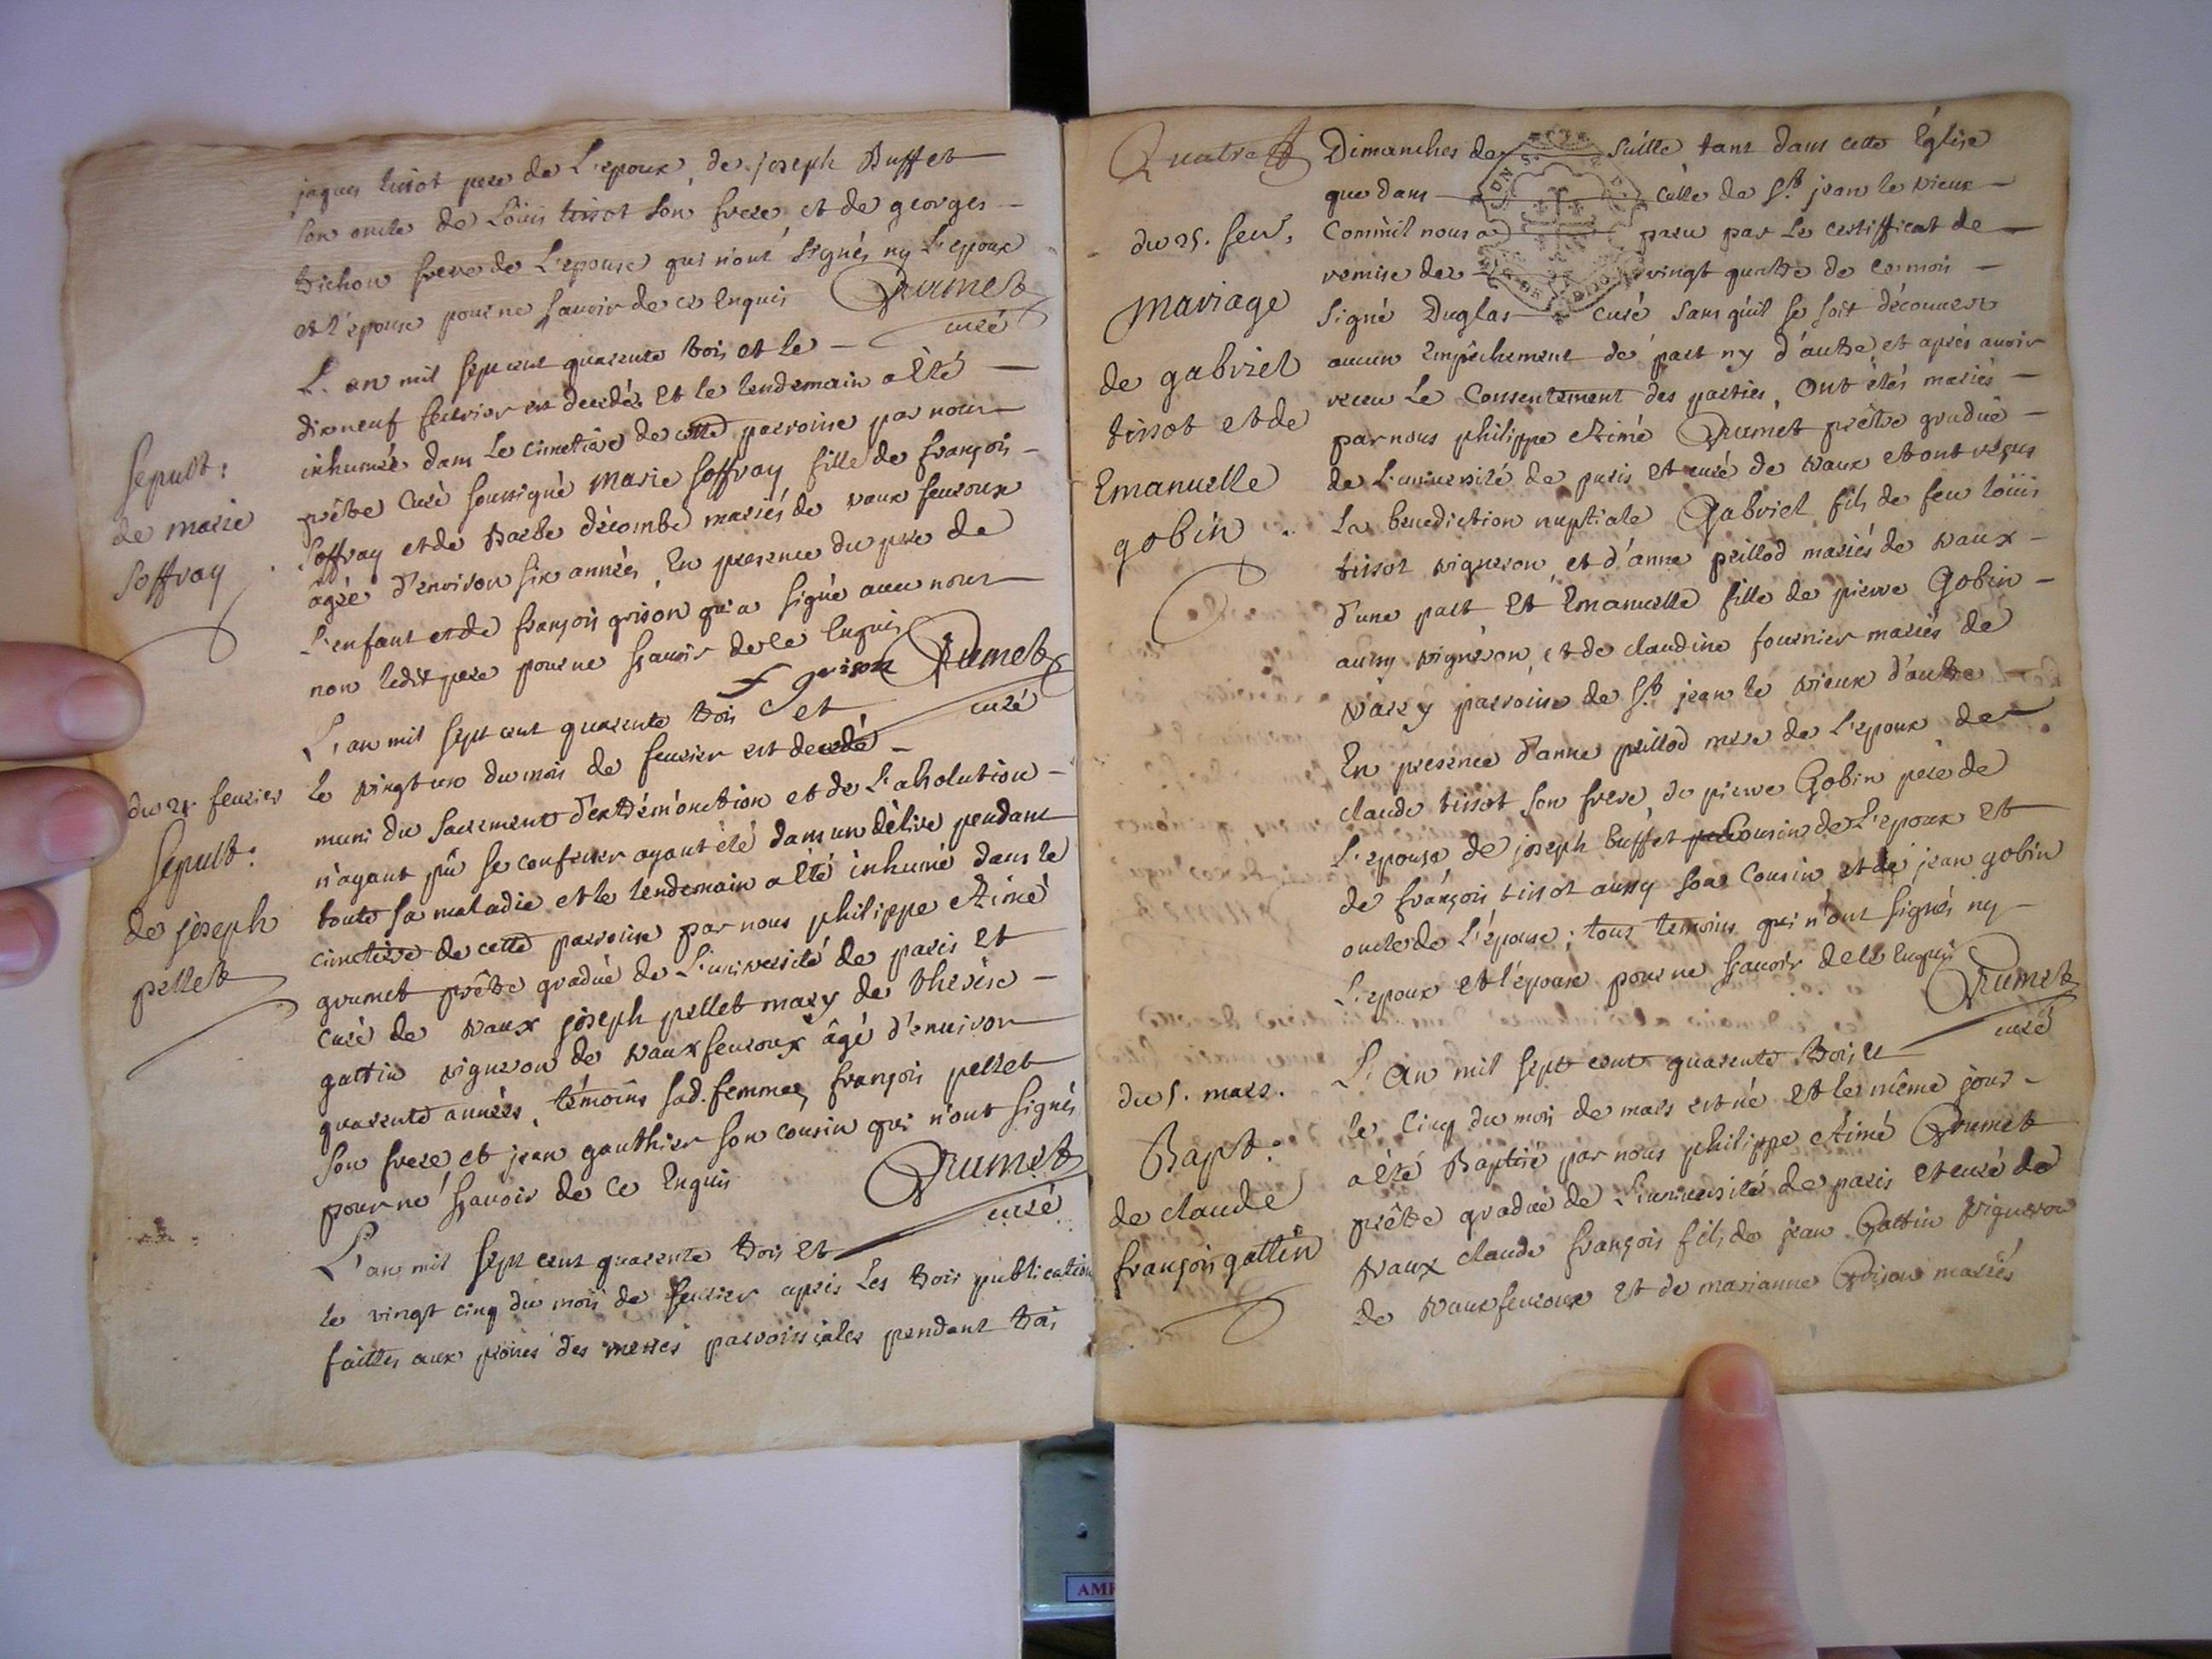 jaques tissot pere de L'epoux, de joseph Buffet
son oncle de Loüis tissot son frere et de georges
trichon frere de L'epouse qui n'ont signés ny L'epoux
et l'epouse pour ne sçauoir de ce Enquis Grumet
curé
L'an mil sept cent quarente trois et le
dixneuf feurier est decedée et le lendemain a èté
inhumée dans le cimetière de cette parroisse par nous
prêtre Curé soussigné Marie Soffray fille de françois
Soffray et de Barbe décombe mariés de vaux feuroux
âgée d'enuiron six années, En presence du pere de
L'enfant et de françois grison qui a signé auec nous
non ledit pere pour ne sçauoir de ce Enquis
f grison Grumet
curé
Sepult:
de marie
Soffray
L'an mil sept cent quarente trois et
le vingt un du mois de feurier est decedé
muni du sacrement d'extrém'onction et de L'absolution
n'ayant pû se confesser ayant èté dans un dèlire pendant
toute sa maladie et le lendemain a èté inhumé dans le
cimetière de cette parroisse par nous philippe Aimé
grumet prêtre gradué de L'uniuersité de paris et
Curé de vaux joseph pellet mary de therèse
gattin vigneron de vaux feuroux âgé d'enuiron
quarente années, témoins sad. femme, françois pellet
son frere et jean gauthier son cousin qui n'ont signés
pour ne sçauoir de Ce Enquis Grumet
curé
du 21 feurier
Sepult:
de joseph
pellet
L'an mil sept cent quarente trois et
le vingt cinq du mois de feurier après Les trois publication
faittes aux prônes des messes parroissiales pendant trois
Quatre
Dimanches de suitte, tant dans cette Église
que dans celle de St. jean le vieux
Comm'il nous a paru par Le certifficat de
remise de vingt quatre de ce mois
Signé Duglas Curé sans qu'il se soit découuert
aucun Empêchement de part ny d'autre et après auoir
receu Le Consentement des parties, Ont étés mariés
par nous philippe Aimé Grumet prêtre gradué
de L'uniuersité de paris et curé de vaux et ont reçus
La benediction nuptiale Gabriel fils de feu loüis
tissot vigneron et d'anne peillod mariés de vaux
d'une part Et Emanuelle fille de pierre Gobin
aussy vigneron et de claudine fournier mariés de
varey parroisse de St. jean le vieux d'autre
En presence d'anne peillod mere de L'epoux de
claude tissot son frere, de pierre Gobin père de
L'epouse de joseph buffet Cousin de L'epoux et
de françois tissot aussy son Cousin et de jean gobin
oncle de L'épouse; tous temoins qui n'ont signés ny
L'epoux et l'epouse pour ne sçauoir de ce Enquis
Grumet
curé
du 25. feur,
Mariage
de gabriel
tissot et de
Emanuelle
gobin
L'an mil sept cent quarente trois et
le Cinq du mois de mars est né et le même jour
a èté Baptisé par nous philippe Aimé Grumet
prêtre gradué de L'uniuersité de paris et curé de
vaux claude françois fils de jean Gattin vigneron
de vaux feuroux et de marianne Grison mariés
du 5. mars.
Bapt:
de claude
françois gattin